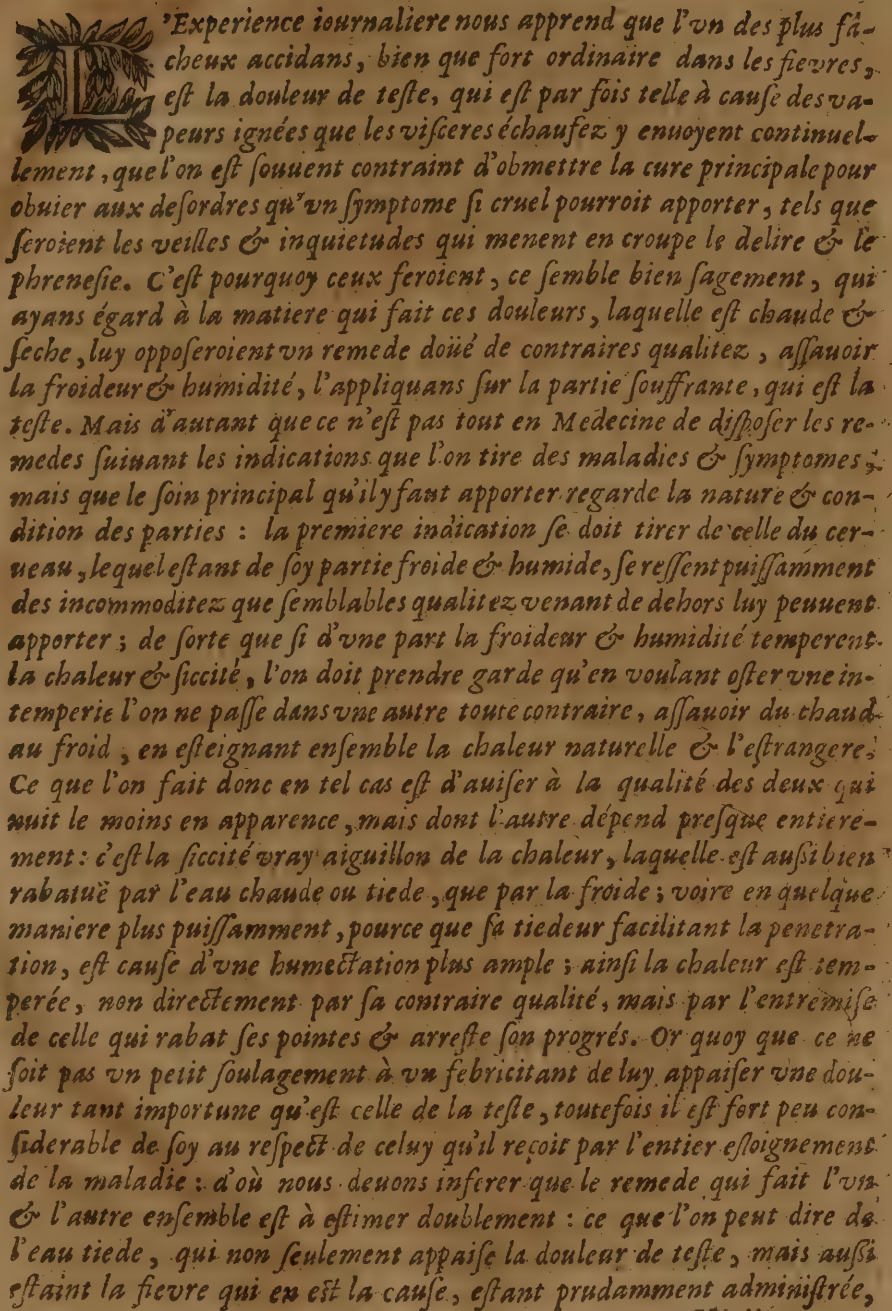 L'Experience iournaliere nous apprend que l'vn des plus fâ-
cheux accidans, bien que fort ordinaire dans les fievres,
eſt la douleur de teſte, qui eſt par fois telle à cauſe des va-
peurs ignées que les viſceres échaufez y enuoyent continuel-
lement, que l'on eſt ſouuent contraint d'obmettre la cure principale pour
obuier aux deſordres qu'vn ſymptome ſi cruel pourroit apporter, tels que
ſeroient les veilles & inquietudes qui menent en croupe le delire & le
phreneſie. C'eſt pourquoy ceux feroient, ce ſemble bien ſagement, qui
ayans égard à la matiere qui fait ces douleurs, laquelle eſt chaude &
ſeche, luy oppoſeroient vn remede doüé de contraires qualitez, aſſauoir
la froideur & humidité, l'appliquans ſur la partie ſouffrante, qui eſt la
teſte. Mais d'autant que ce n'eſt pas tout en Medecine de diſpoſer les re-
medes ſuiuant les indications que l'on tire des maladies & ſymptomes;
mais que le ſoin principal qu'il y faut apporter regarde la nature & con-
dition des parties : la premiere indication ſe doit tirer de celle du cer-
ueau, lequel eſtant de ſoy partie froide & humide, ſe reſſent puiſſamment
des incommoditez que ſemblables qualitez venant de dehors luy peuuent
apporter ; de ſorte que ſi d'vne part la froideur & humidité temperent
la chaleur & ſiccité, l'on doit prendre garde qu'en voulant oſter vne in-
temperie l'on ne paſſe dans vne autre toute contraire, aſſauoir du chaud
au froid, en eſteignant enſemble la chaleur naturelle & l'eſtrangere.
Ce que l'on fait donc en tel cas eſt d'auiſer à la qualité des deux qui
nuit le moins en apparence, mais dont l'autre dépend preſque entiere-
ment : c'eſt la ſiccité vray aiguillon de la chaleur, laquelle eſt auſsi bien
rabatuë par l'eau chaude ou tiede, que par la froide ; voire en quelque
maniere plus puiſſamment, pource que ſa tiedeur facilitant la penetra-
tion, eſt cauſe d'vne humectation plus ample ; ainſi la chaleur eſt tem-
perée, non directement par ſa contraire qualité, mais par l'entremiſe
de celle qui rabat ſes pointes & arreſte ſon progrés. Or quoy que ce ne
ſoit pas vn petit ſoulagement à vn febricitant de luy appaiſer vne dou-
leur tant importune qu'eſt celle de la teſte, toutefois il eſt fort peu con-
ſiderable de ſoy au reſpect de celuy qu'il reçoit par l'entier eſloignement
de la maladie : d'où nous deuons inferer que le remede qui fait l'vn
& l'autre enſemble eſt à eſtimer doublement : ce que l'on peut dire de
l'eau tiede, qui non ſeulement appaiſe la douleur de teſte, mais auſsi
eſtaint la fievre qui en eſt la cauſe, eſtant prudamment adminiſtrée,